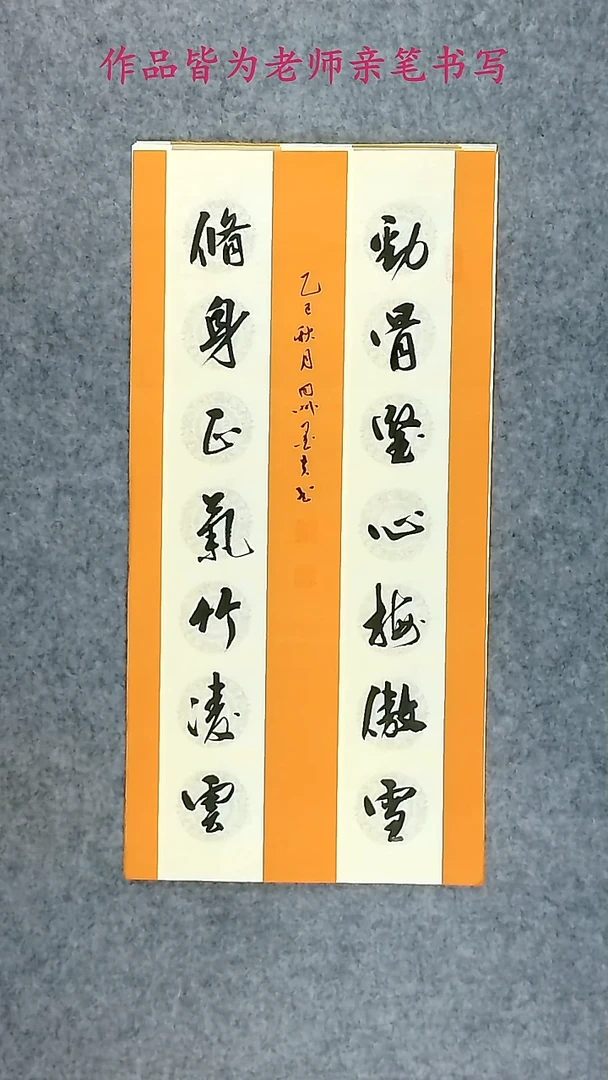 作品皆为老师亲笔书写
勁骨堅心梅傲雪
脩身正氣竹凌雲
乙巳秋月